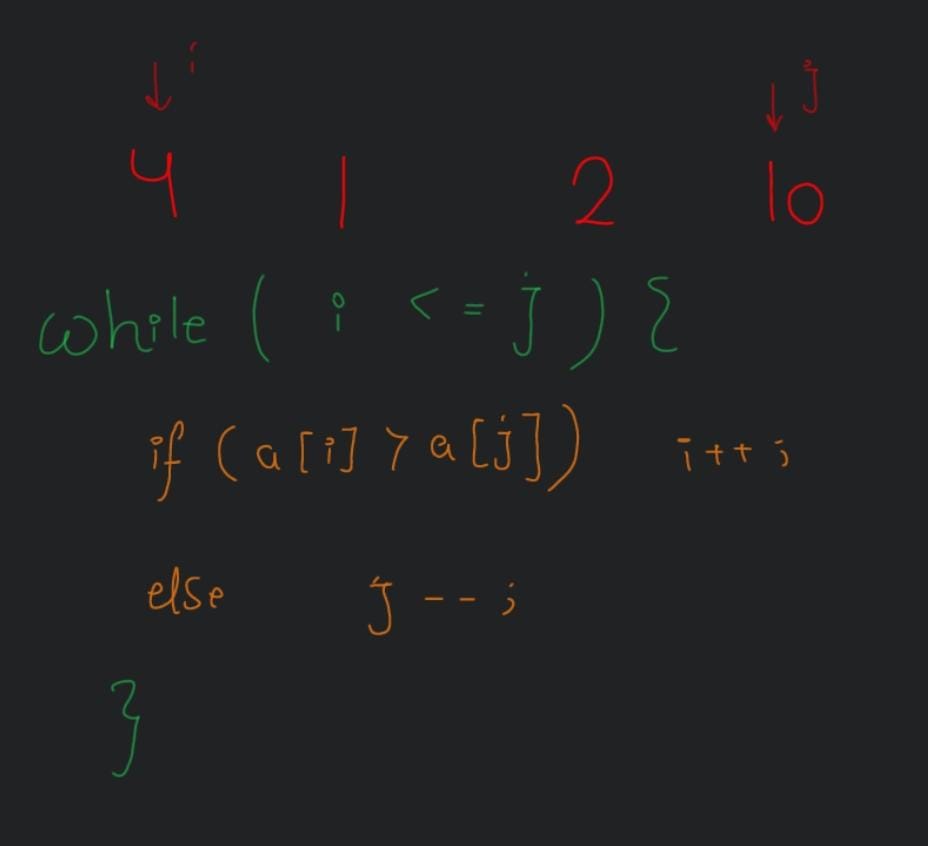 i j
4 1 2 10
while ( i <= j ) {
if (a[i] > a[j]) i++ ;
else j -- ;
}